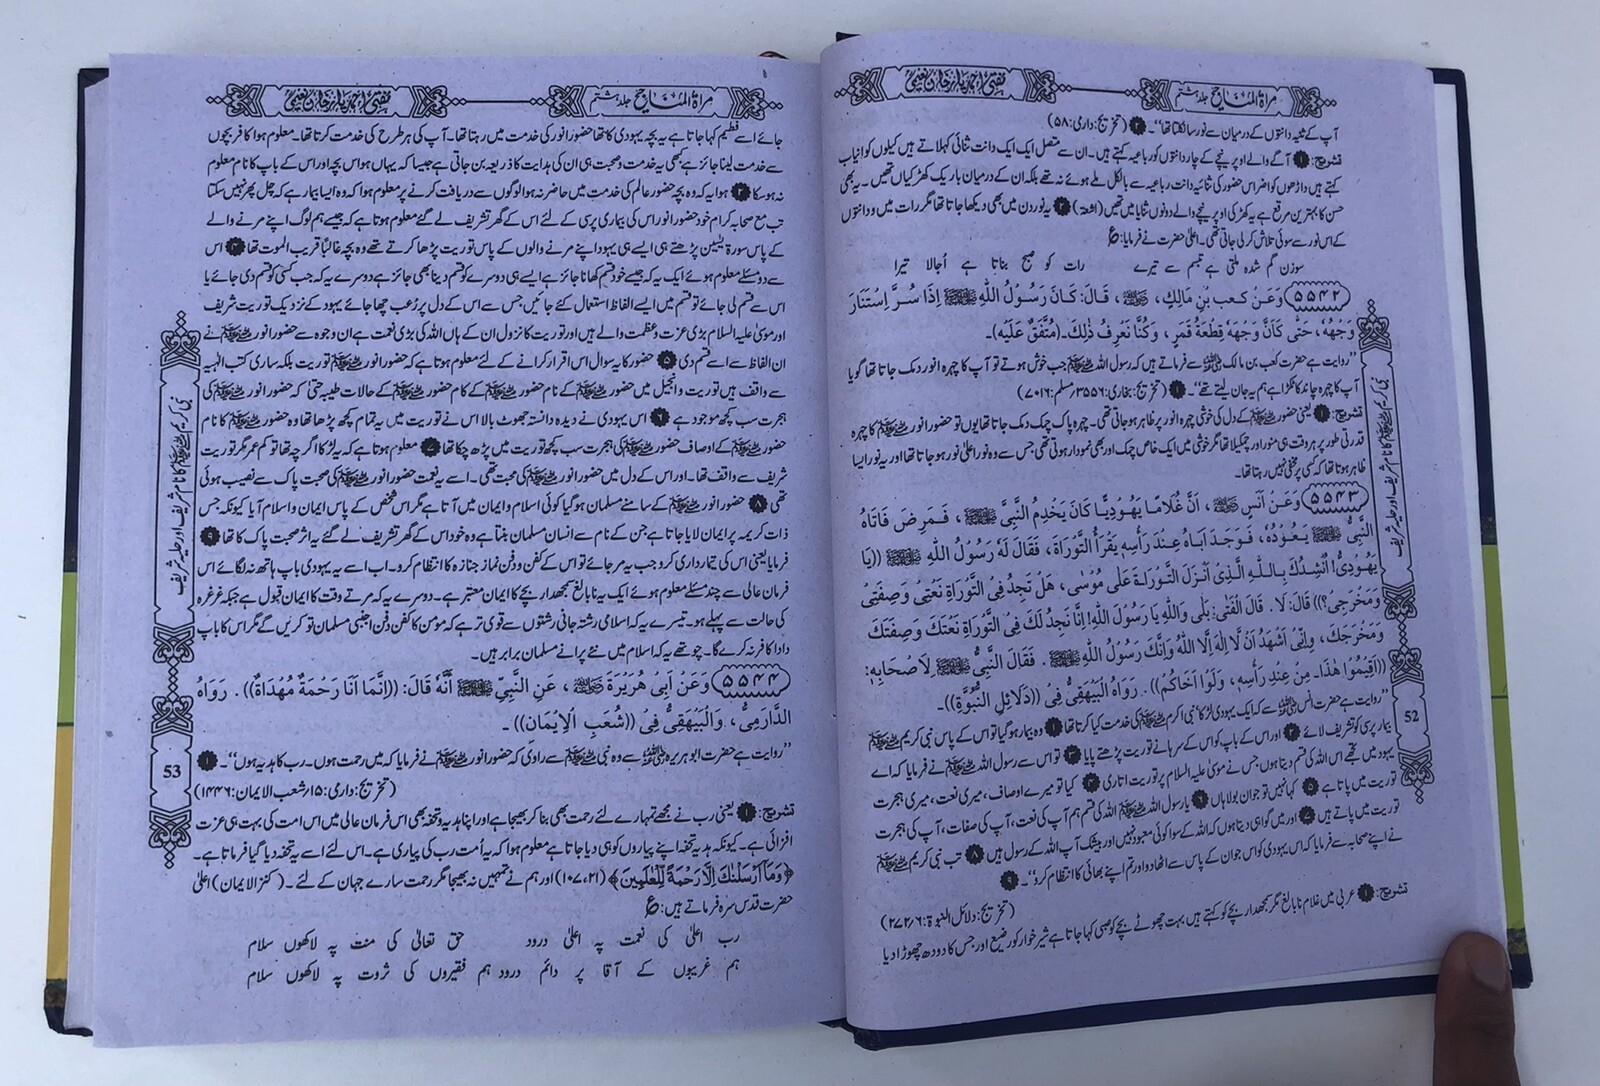 مراۃ المناجیح جلد ہشتم
مفتی احمد یار خان نعیمی
آپ کے ثنیہ دانتوں کے درمیان سے نور سا نکلتا تھا"۔ ۲ (تخریج: دارمی: ۵۸)
تشریح: ۱ آگے والے اوپر نیچے کے چار دانتوں کو رباعیہ کہتے ہیں۔ ان سے متصل ایک ایک دانت ثنائی کہلاتے ہیں کیلوں کو انیاب
کہتے ہیں داڑھوں کو اضراس حضور کی ثنائیہ دانت رباعیہ سے بالکل ملے ہوئے نہ تھے بلکہ ان کے درمیان باریک کھڑکیاں تھیں۔ یہ بھی
حسن کا بہترین مرقع ہے یہ کھڑکی اوپر نیچے والے دونوں ثنایا میں تھیں (اشعۃ) ۲ یہ نور دن میں بھی دیکھا جاتا تھا مگر رات میں وہ دانتوں
کے اس نور سے سوئی تلاش کر لی جاتی تھی۔ اعلیٰ حضرت نے فرمایا: ؏
سوزن گم شدہ ملتی ہے تبسم سے تیرے رات کو صبح بناتا ہے اُجالا تیرا
۵۵۴۲ وَعَنْ كَعبِ بْنِ مَالِكٍ، ﷺ، قَالَ: كَانَ رَسُوْلُ اللهِ ﷺ اِذَا سُرَّ اسْتَنَارَ
وَجْهُهٗ، حَتّٰى كَاَنَّ وَجْهَهٗ قِطْعَةُ قَمَرٍ، وَكُنَّا نَعْرِفُ ذٰلِكَ۔ (مُتَّفَقٌ عَلَيْهِ)۔
"روایت ہے حضرت کعب بن مالک سے فرماتے ہیں کہ رسول اللہ ﷺ جب خوش ہوتے تو آپ کا چہرہ انور دمک جاتا تھا گویا
آپ کا چہرہ چاند کا ٹکڑا ہے ہم یہ جان لیتے تھے"۔ ۱ (تخریج: بخاری: ۳۵۵۶، مسلم: ۷۰۱۶)
تشریح: ۱ یعنی حضور ﷺ کے دل کی خوشی چہرہ انور پر ظاہر ہو جاتی تھی۔ چہرہ پاک چمک دمک جاتا تھا یوں تو حضور انور ﷺ کا چہرہ
قدرتی طور پر ہر وقت ہی منور اور چمکیلا تھا مگر خوشی میں ایک خاص چمک اور بھی نمودار ہوتی تھی جس سے وہ نور اعلیٰ نور ہو جاتا تھا اور یہ نور ایسا
ظاہر ہوتا تھا کہ کسی پر مخفی نہیں رہتا تھا۔
۵۵۴۳ وَعَنْ اَنَسٍ، اَنَّ غُلَامًا يَهُوْدِيًّا كَانَ يَخْدِمُ النَّبِيَّ ﷺ، فَمَرِضَ فَاَتَاهُ
النَّبِيُّ ﷺ يَعُوْدُهٗ، فَوَجَدَ اَبَاهُ عِنْدَ رَأْسِهٖ يَقْرَأُ التَّوْرَاةَ، فَقَالَ لَهٗ رَسُوْلُ اللهِ ﷺ ((يَا
يَهُوْدِيُّ! اُنْشِدُكَ بِاللهِ الَّذِيْ اَنْزَلَ التَّوْرَاةَ عَلٰى مُوْسٰى، هَلْ تَجِدُ فِي التَّوْرَاةِ نَعْتِيْ وَصِفَتِيْ
وَمَخْرَجِيْ؟)) قَالَ: لَا. قَالَ الْفَتٰى: بَلٰى وَاللهِ يَا رَسُوْلَ اللهِ! اِنَّا نَجِدُ لَكَ فِي التَّوْرَاةِ نَعْتَكَ وَصِفَتَكَ
وَمَخْرَجَكَ، وَاِنِّيْ اَشْهَدُ اَنْ لَّا اِلٰهَ اِلَّا اللهُ وَاَنَّكَ رَسُوْلُ اللهِ ﷺ. فَقَالَ النَّبِيُّ ﷺ لِاَصْحَابِهٖ:
((اَقِيْمُوْا هٰذَا مِنْ عِنْدِ رَأْسِهٖ، وَلُوْا اَخَاكُمْ)). رَوَاهُ الْبَيْهَقِيُّ فِيْ ((دَلَائِلِ النُّبُوَّةِ))۔
"روایت ہے حضرت انس سے کہ ایک یہودی لڑکا نبی اکرم ﷺ کی خدمت کیا کرتا تھا ۱ وہ بیمار ہو گیا تو اس کے پاس نبی کریم ﷺ
بیمار پرسی کو تشریف لائے ۲ اور اس کے باپ کو اس کے سرہانے توریت پڑھتے پایا ۳ تو اس سے رسول اللہ ﷺ نے فرمایا کہ اے
یہود میں تجھے اس اللہ کی قسم دیتا ہوں جس نے موسیٰ علیہ السلام پر توریت اتاری ۴ کیا تو میرے اوصاف، میری نعت، میری ہجرت
توریت میں پاتا ہے ۵ کہا نہیں تو جوان بولا ہاں ۶ یا رسول اللہ ﷺ اللہ کی قسم ہم آپ کی نعت، آپ کی صفات، آپ کی ہجرت
توریت میں پاتے ہیں ۷ اور میں گواہی دیتا ہوں کہ اللہ کے سوا کوئی معبود نہیں اور بیشک آپ اللہ کے رسول ہیں ۸ تب نبی کریم ﷺ
نے اپنے صحابہ سے فرمایا کہ اس یہودی کو اس جوان کے پاس سے اٹھا دو اور تم اپنے بھائی کا انتظام کرو"۔ ۹
(تخریج: دلائل النبوۃ: ۲۷۲/۶)
تشریح: ۱ عربی میں غلام نابالغ مگر سمجھدار بچے کو کہتے ہیں بہت چھوٹے بچے کو صبی کہا جاتا ہے شیر خوار کو رضیع اور جس کا دودھ چھوڑا دیا
نبی کریم ﷺ کا نام شریف اور حلیہ شریف
52
مراۃ المناجیح جلد ہشتم
مفتی احمد یار خان نعیمی
جائے اسے فطیم کہا جاتا ہے یہ بچہ یہودی کا تھا حضور انور کی خدمت میں رہتا تھا۔ آپ کی ہر طرح کی خدمت کرتا تھا۔ معلوم ہوا کافر بچوں
سے خدمت لینا جائز ہے کبھی یہ خدمت و محبت ہی ان کی ہدایت کا ذریعہ بن جاتی ہے جیسا کہ یہاں ہوا اس بچہ اور اس کے باپ کا نام معلوم
نہ ہو سکا ۲ ہوا یہ کہ وہ بچہ حضور عالم کی خدمت میں حاضر نہ ہوا لوگوں سے دریافت کرنے پر معلوم ہوا کہ وہ ایسا بیمار ہے کہ چل پھر نہیں سکتا
تب مع صحابہ کرام خود حضور انور اس کی بیماری پرسی کے لئے اس کے گھر تشریف لے گئے معلوم ہوتا ہے کہ جیسے ہم لوگ اپنے مرنے والے
کے پاس سورۃ یٰسین پڑھتے ہی ایسے ہی یہود اپنے مرنے والوں کے پاس توریت پڑھا کرتے تھے وہ بچہ غالبًا قریب الموت تھا ۳ اس
سے دو مسئلے معلوم ہوئے ایک یہ کہ جیسے خود قسم کھانا جائز ہے ایسے ہی دوسرے کو قسم دینا بھی جائز ہے دوسرے یہ کہ جب کسی کو قسم دی جائے یا
اس سے قسم لی جائے تو قسم میں ایسے الفاظ استعمال کئے جائیں جس سے اس کے دل پر رُعب چھا جائے یہود کے نزدیک توریت شریف
اور موسیٰ علیہ السلام بڑی عزت و عظمت والے ہیں اور توریت کا نزول ان کے ہاں اللہ کی بڑی نعمت ہے ان وجوہ سے حضور انور ﷺ نے
ان الفاظ سے اسے قسم دی ۵ حضور کا یہ سوال اس اقرار کرانے کے لئے معلوم ہوتا ہے کہ حضور انور ﷺ توریت بلکہ ساری کتب الٰہیہ
سے واقف ہیں توریت و انجیل میں حضور ﷺ کے نام حضور ﷺ کے کام حضور ﷺ کے حالات طیبہ حتیٰ کہ حضور انور ﷺ کی
ہجرت سب کچھ موجود ہے ۶ اس یہودی نے دیدہ دانستہ جھوٹ بالا اس نے توریت میں یہ تمام کچھ پڑھا تھا وہ حضور ﷺ کا نام
حضور ﷺ کے اوصاف حضور ﷺ کی ہجرت سب کچھ توریت میں پڑھ چکا تھا ۷ معلوم ہوتا ہے کہ یہ لڑکا اگرچہ تھا تو کم عمر مگر توریت
شریف سے واقف تھا۔ اور اس کے دل میں حضور انور ﷺ کی محبت تھی۔ اسے یہ نعمت حضور انور ﷺ کی صحبت پاک سے نصیب ہوئی
تھی ۸ حضور انور ﷺ کے سامنے مسلمان ہو گیا کوئی اسلام و ایمان میں آتا ہے مگر اس شخص کے پاس ایمان و اسلام آیا کیونکہ جس
ذات کریمہ پر ایمان لایا جاتا ہے جن کے نام سے انسان مسلمان بنتا ہے وہ خود اس کے گھر تشریف لے گئے یہ اثر صحبت پاک کا تھا ۹
فرمایا یعنی اس کی تیمارداری کرو جب یہ مر جائے تو اس کے کفن و دفن نماز جنازہ کا انتظام کرو۔ اب اسے یہ یہودی باپ ہاتھ نہ لگائے اس
فرمان عالی سے چند مسئلے معلوم ہوئے ایک یہ نابالغ سمجھدار بچے کا ایمان معتبر ہے۔ دوسرے یہ کہ مرتے وقت کا ایمان قبول ہے جبکہ غرغرہ
کی حالت سے پہلے ہو۔ تیسرے یہ کہ اسلامی رشتہ جانی رشتوں سے قوی تر ہے کہ مؤمن کا کفن دفن اجنبی مسلمان تو کریں گے مگر اس کا باپ
دادا کافر نہ کرے گا۔ چوتھے یہ کہ اسلام میں نئے پرانے مسلمان برابر ہیں۔
۵۵۴۴ وَعَنْ اَبِيْ هُرَيْرَةَ، عَنِ النَّبِيِّ ﷺ اَنَّهٗ قَالَ: ((اِنَّمَا اَنَا رَحْمَةٌ مُهْدَاةٌ)). رَوَاهُ
الدَّارَمِيُّ، وَالْبَيْهَقِيُّ فِيْ ((شُعَبِ الْاِيْمَانِ))۔
"روایت ہے حضرت ابو ہریرہ سے وہ نبی ﷺ سے راوی کہ حضور انور ﷺ نے فرمایا کہ میں رحمت ہوں۔ رب کا ہدیہ ہوں"۔ ۱
(تخریج: دارمی: ۱۵، شعب الایمان: ۱۴۴۶)
تشریح: ۱ یعنی رب نے مجھے تمہارے لئے رحمت بھی بنا کر بھیجا ہے اور اپنا ہدیہ و تحفہ بھی اس فرمان عالی میں اس امت کی بہت ہی عزت
افزائی ہے۔ کیونکہ ہدیہ تحفہ اپنے پیاروں کو ہی دیا جاتا ہے معلوم ہوا کہ یہ اُمت رب کی پیاری ہے۔ اس لئے اسے یہ تحفہ دیا گیا فرماتا ہے۔
﴿وَمَآ اَرْسَلْنٰكَ اِلَّا رَحْمَةً لِّلْعٰلَمِيْنَ﴾ (۱۰۷،۲۱) اور ہم نے تمہیں نہ بھیجا مگر رحمت سارے جہان کے لئے۔ (کنزالایمان) اعلیٰ
حضرت قدس سرہ فرماتے ہیں: ؏
رب اعلیٰ کی نعمت پہ اعلیٰ درود حق تعالیٰ کی منت پہ لاکھوں سلام
ہم غریبوں کے آقا پر دائم درود ہم فقیروں کی ثروت پہ لاکھوں سلام
نبی کریم ﷺ کا نام شریف اور حلیہ شریف
53